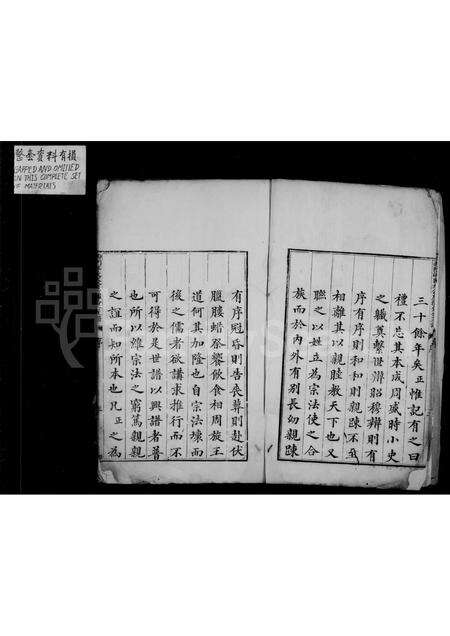 整套資料有損
GAPPED AND OMITTED
IN THIS COMPLETE SET
OF MATERIALS
三十餘年矣正惟記有之曰
禮不忘其本成周盛時小史
之職奠繫世辨昭穆辨則有
序有序則和和則親踈不至
相離其以親睦敎天下也又
聯之以姓立為宗法使之合
族而於内外有别長幼親踈
有序冠昏則告喪葬則赴伏
臘膢蜡祭飲食相周族王
道何其加隆也自宗法壞而
後之儒者欲講求推行而不
可得於是世譜以興譜者蓋
也所以維宗法之窮篤親親
之誼而知所本也凡正之為